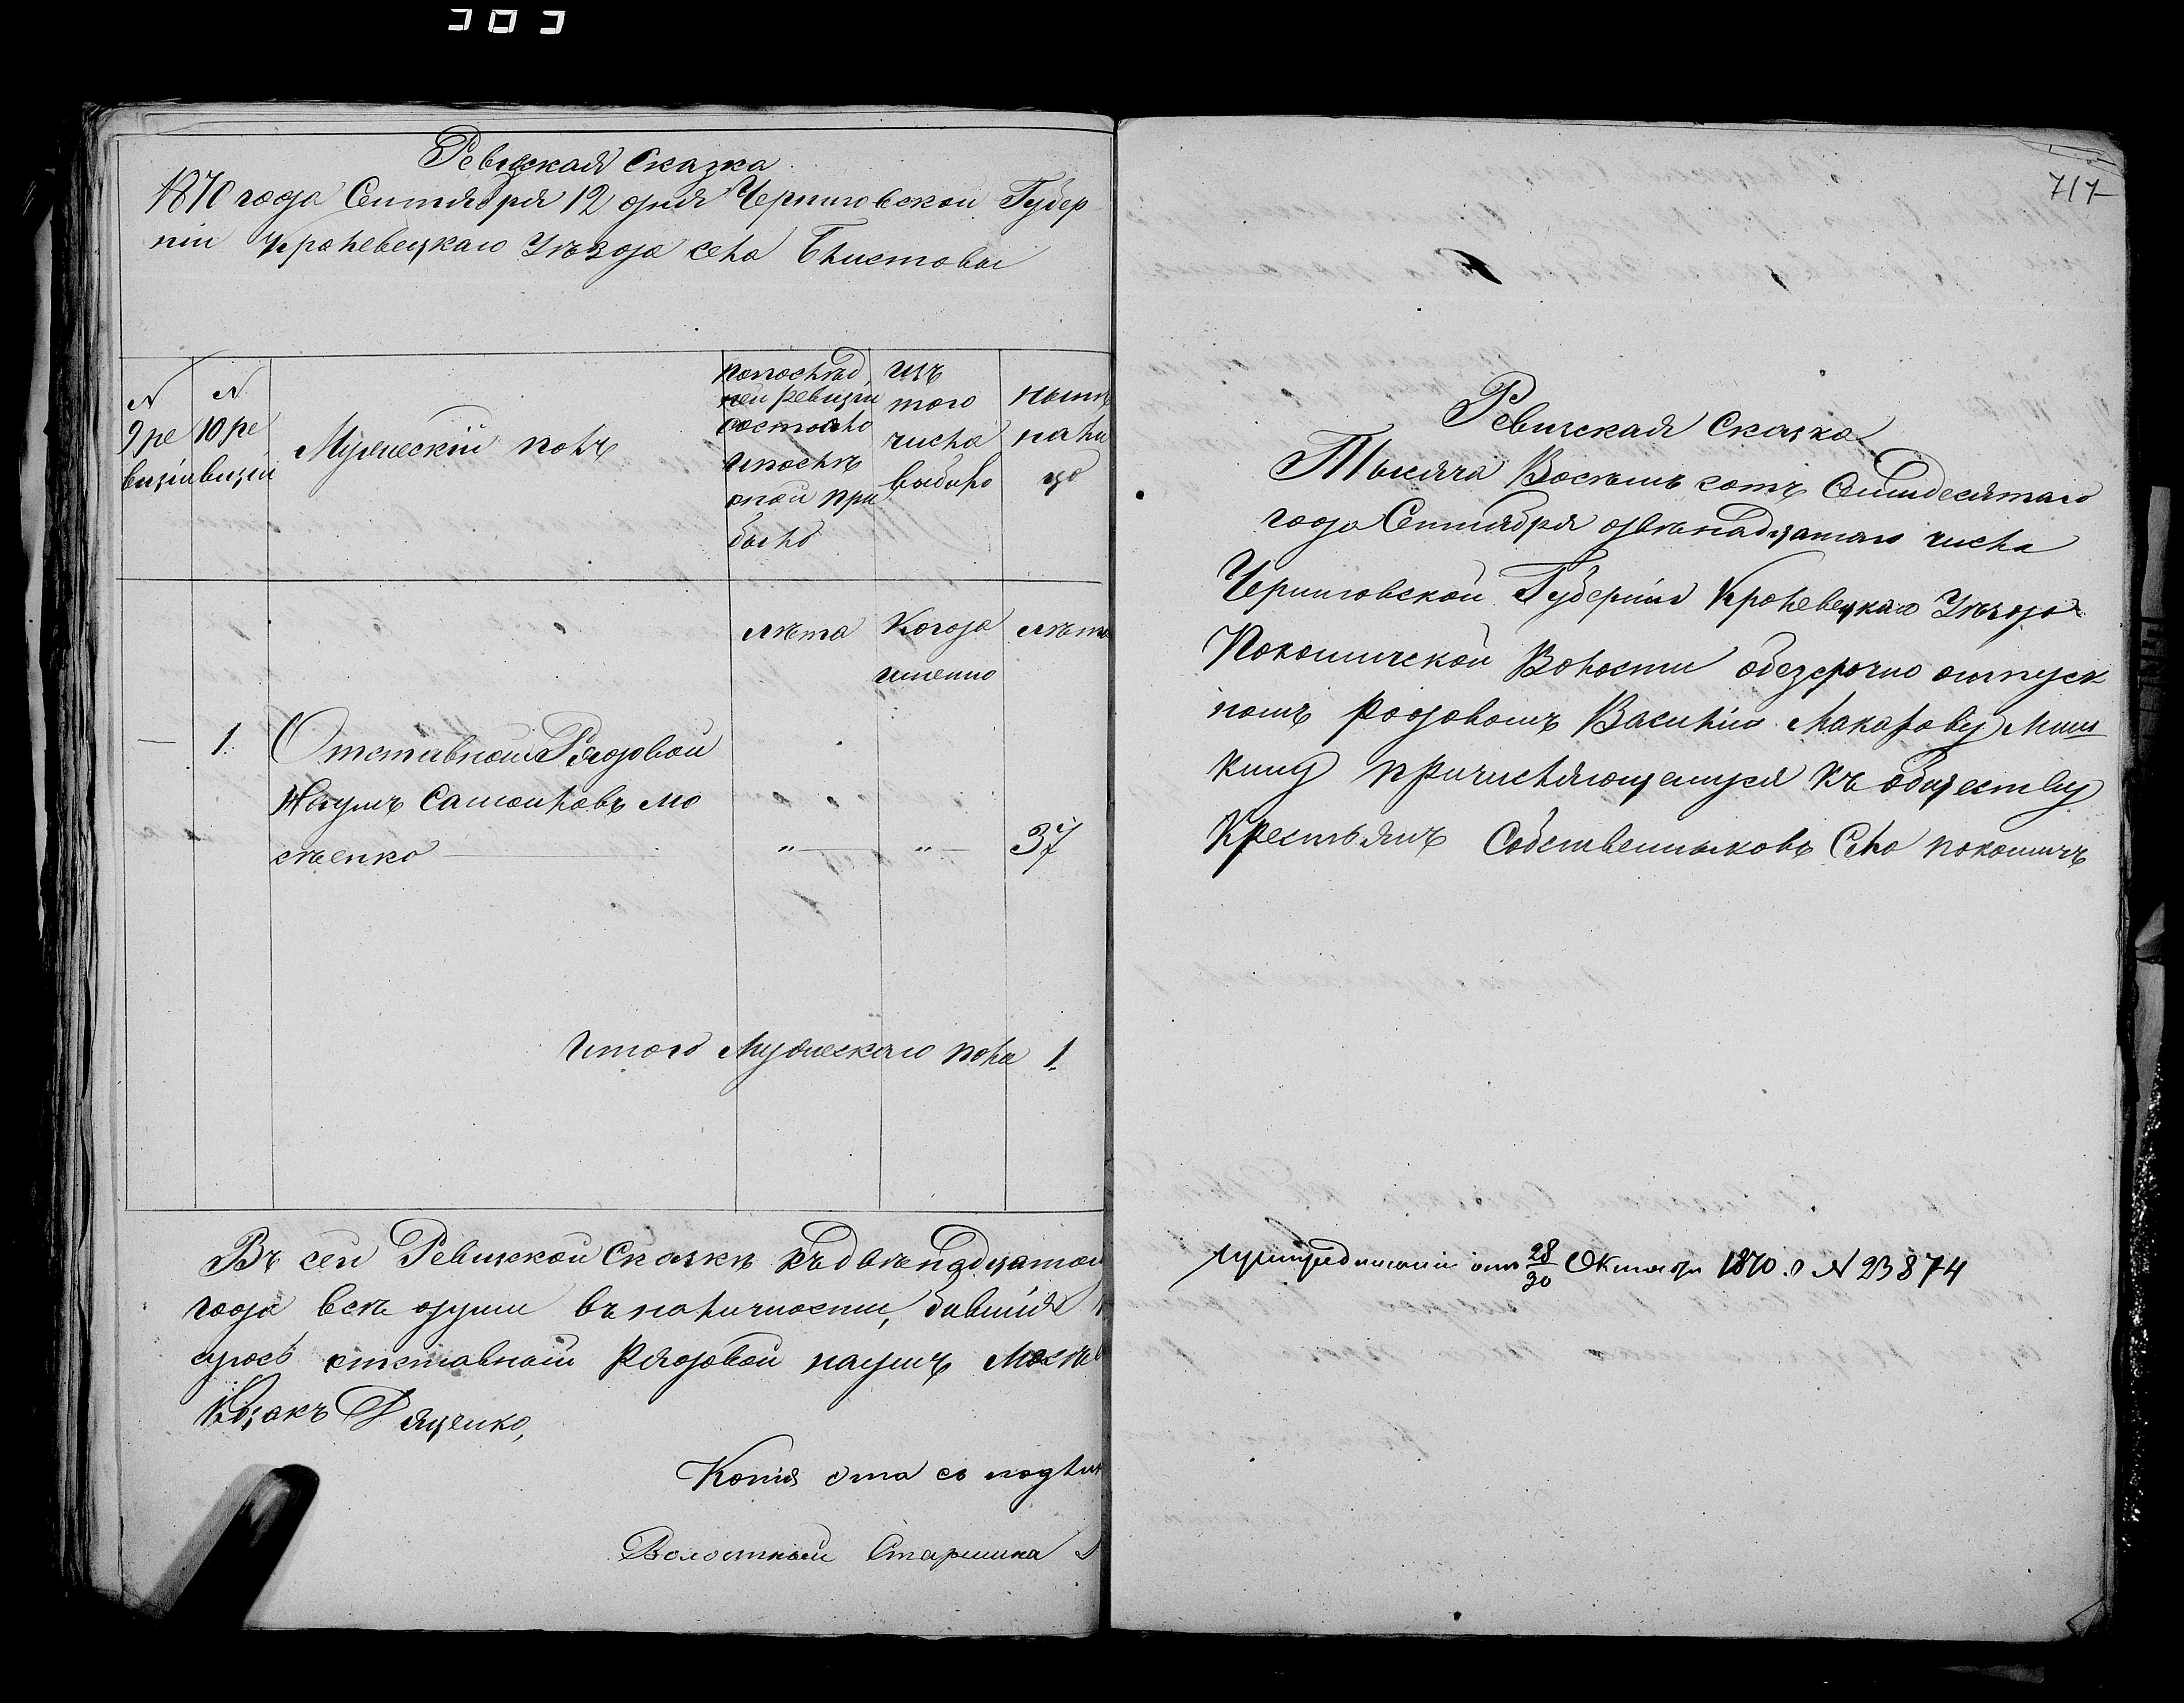 Ревизская Сказка
1870 года Сентября 12 дня Черниговской Губер
ніи Кролевецкаго Уѣзда села Блистовы
№ 9 ре
визіи
№ 10 ре
визіи
Мужескій полъ
попослѣд
ней ревизіи
состояло
и послѣ
оной при
было
изъ
того
числа
выбыло
нынѣ
на ли
цо
лѣта
Когда
именно
лѣта
— 1. Отставной Рядовой
Наумъ Самойловъ Мо
сѣенко „ „ 37
Итого Мужескаго пола 1.
Въ сей Ревизской Сказкѣ къ двѣнадцатому
года всѣ души въ наличности,
отставной Рядовой Наумъ
Козакъ Дяценко,
Копія эта съ подли
Волостной Старшина
717
Ревизская Сказка
Тысяча Восѣмь сотъ Семидесятаго
года Сентября двѣнадцатаго числа
Черниговской Губерніи Кролевецкаго Уѣзда
Покошичской Волости о безсрочно отпуск
номъ рядовомъ Василію Макарову Миш
кину причисляющемуся къ обществу
Крестьянъ Собственныковъ Села Покошичъ
при предписаніи отъ 28/30 Октября 1870 г № 23874